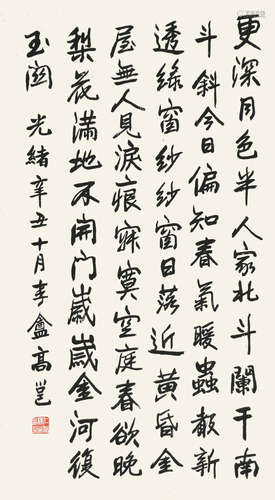 更深月色半人家北斗闌干南
斗斜今日偏知春氣暖蟲聲新
透綠窗紗紗窗日落近黃昏金
屋無人見淚痕寂寞空庭春欲晚
梨花滿地不開門歲歲金河復
玉關 光緒辛丑十月李盦高邕